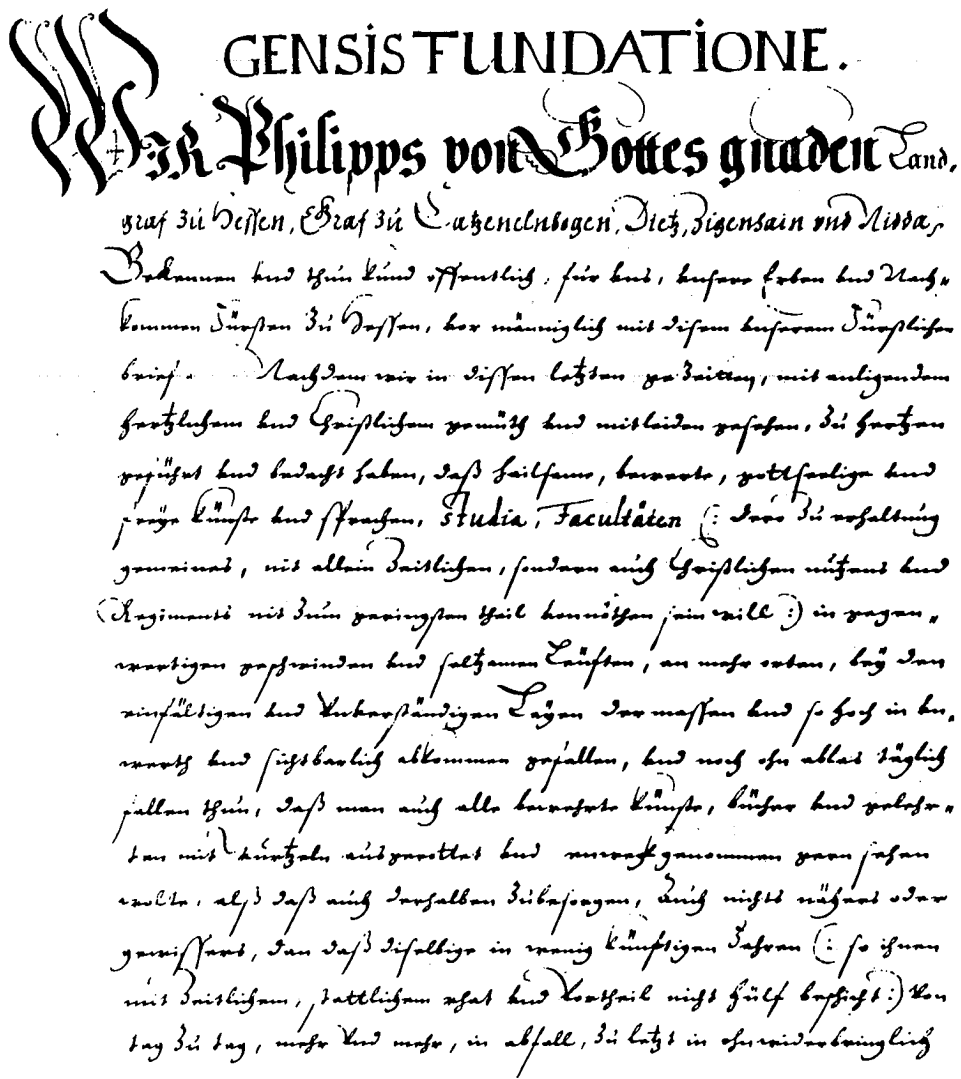 GENSIS FUNDATIONE.
WIR Philipps von Gottes gnaden Land,
graf zů Hessen, Graf zů Catzenelnbogen, Dietz, Zigenhain vnd Nidda,
Bekennen vnd thun kund offentlich, für vns, vnsere Erben vnd Nach„
kommen Fürsten zů Hessen, vor männiglich mit disem vnserem Fürstlichen
brief. Nachdem wir in dissen letzten ge Zeitten, mit anligendem
hertzlichem vnd Christlichem gemüth vnd mitleiden gesehen, zů hertzen
geführt vnd bedacht haben, daß hailsame, bewerte, gottseelige vnd
freÿe künste vnd sprachen, studia, Facultäten (: dero zů erhaltung
gemeines, nit allein Zeitlichen, sondern auch Christlichen nutzens vnd
Regiments nit zum geringsten theil vonnöthen sein will :) in gegen„
wertigen geschwinden vnd seltzamen Leüften, an mehr orten, beÿ den
einfältigen vnd vnverständigen Läyen der massen vnd so hoch in vn„
werth vnd sichtbarlich abkommen gefallen, vnd noch ohn ablas täglich
fallen thun, daß man auch alle bewehrte künste, bücher vnd gelehr„
ten mit wurtzeln ausgerottet vnd enweck genommen gern sehen
wolte, alß daß auch derhalben zubesorgen, Auch nichts nähers oder
gewissers, dan daß diselbige in wenig künftigen Jahren (: so ihnen
mit Zeitlichem, stattlichem rhat vnd Vortheil nicht hülf beschicht :) Von
tag zů tag, mehr Vnd mehr, in abfall, zů letzt in ohnwiderbringlich